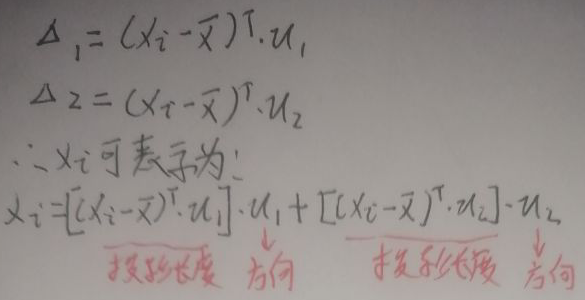 Δ₁=(xᵢ-x̄)ᵀ·u₁
Δ₂=(xᵢ-x̄)ᵀ·u₂
∴xᵢ可表示为:
xᵢ=[(xᵢ-x̄)ᵀ·u₁]·u₁+[(xᵢ-x̄)ᵀ·u₂]·u₂
投影长度 ↓方向 投影长度 ↓方向